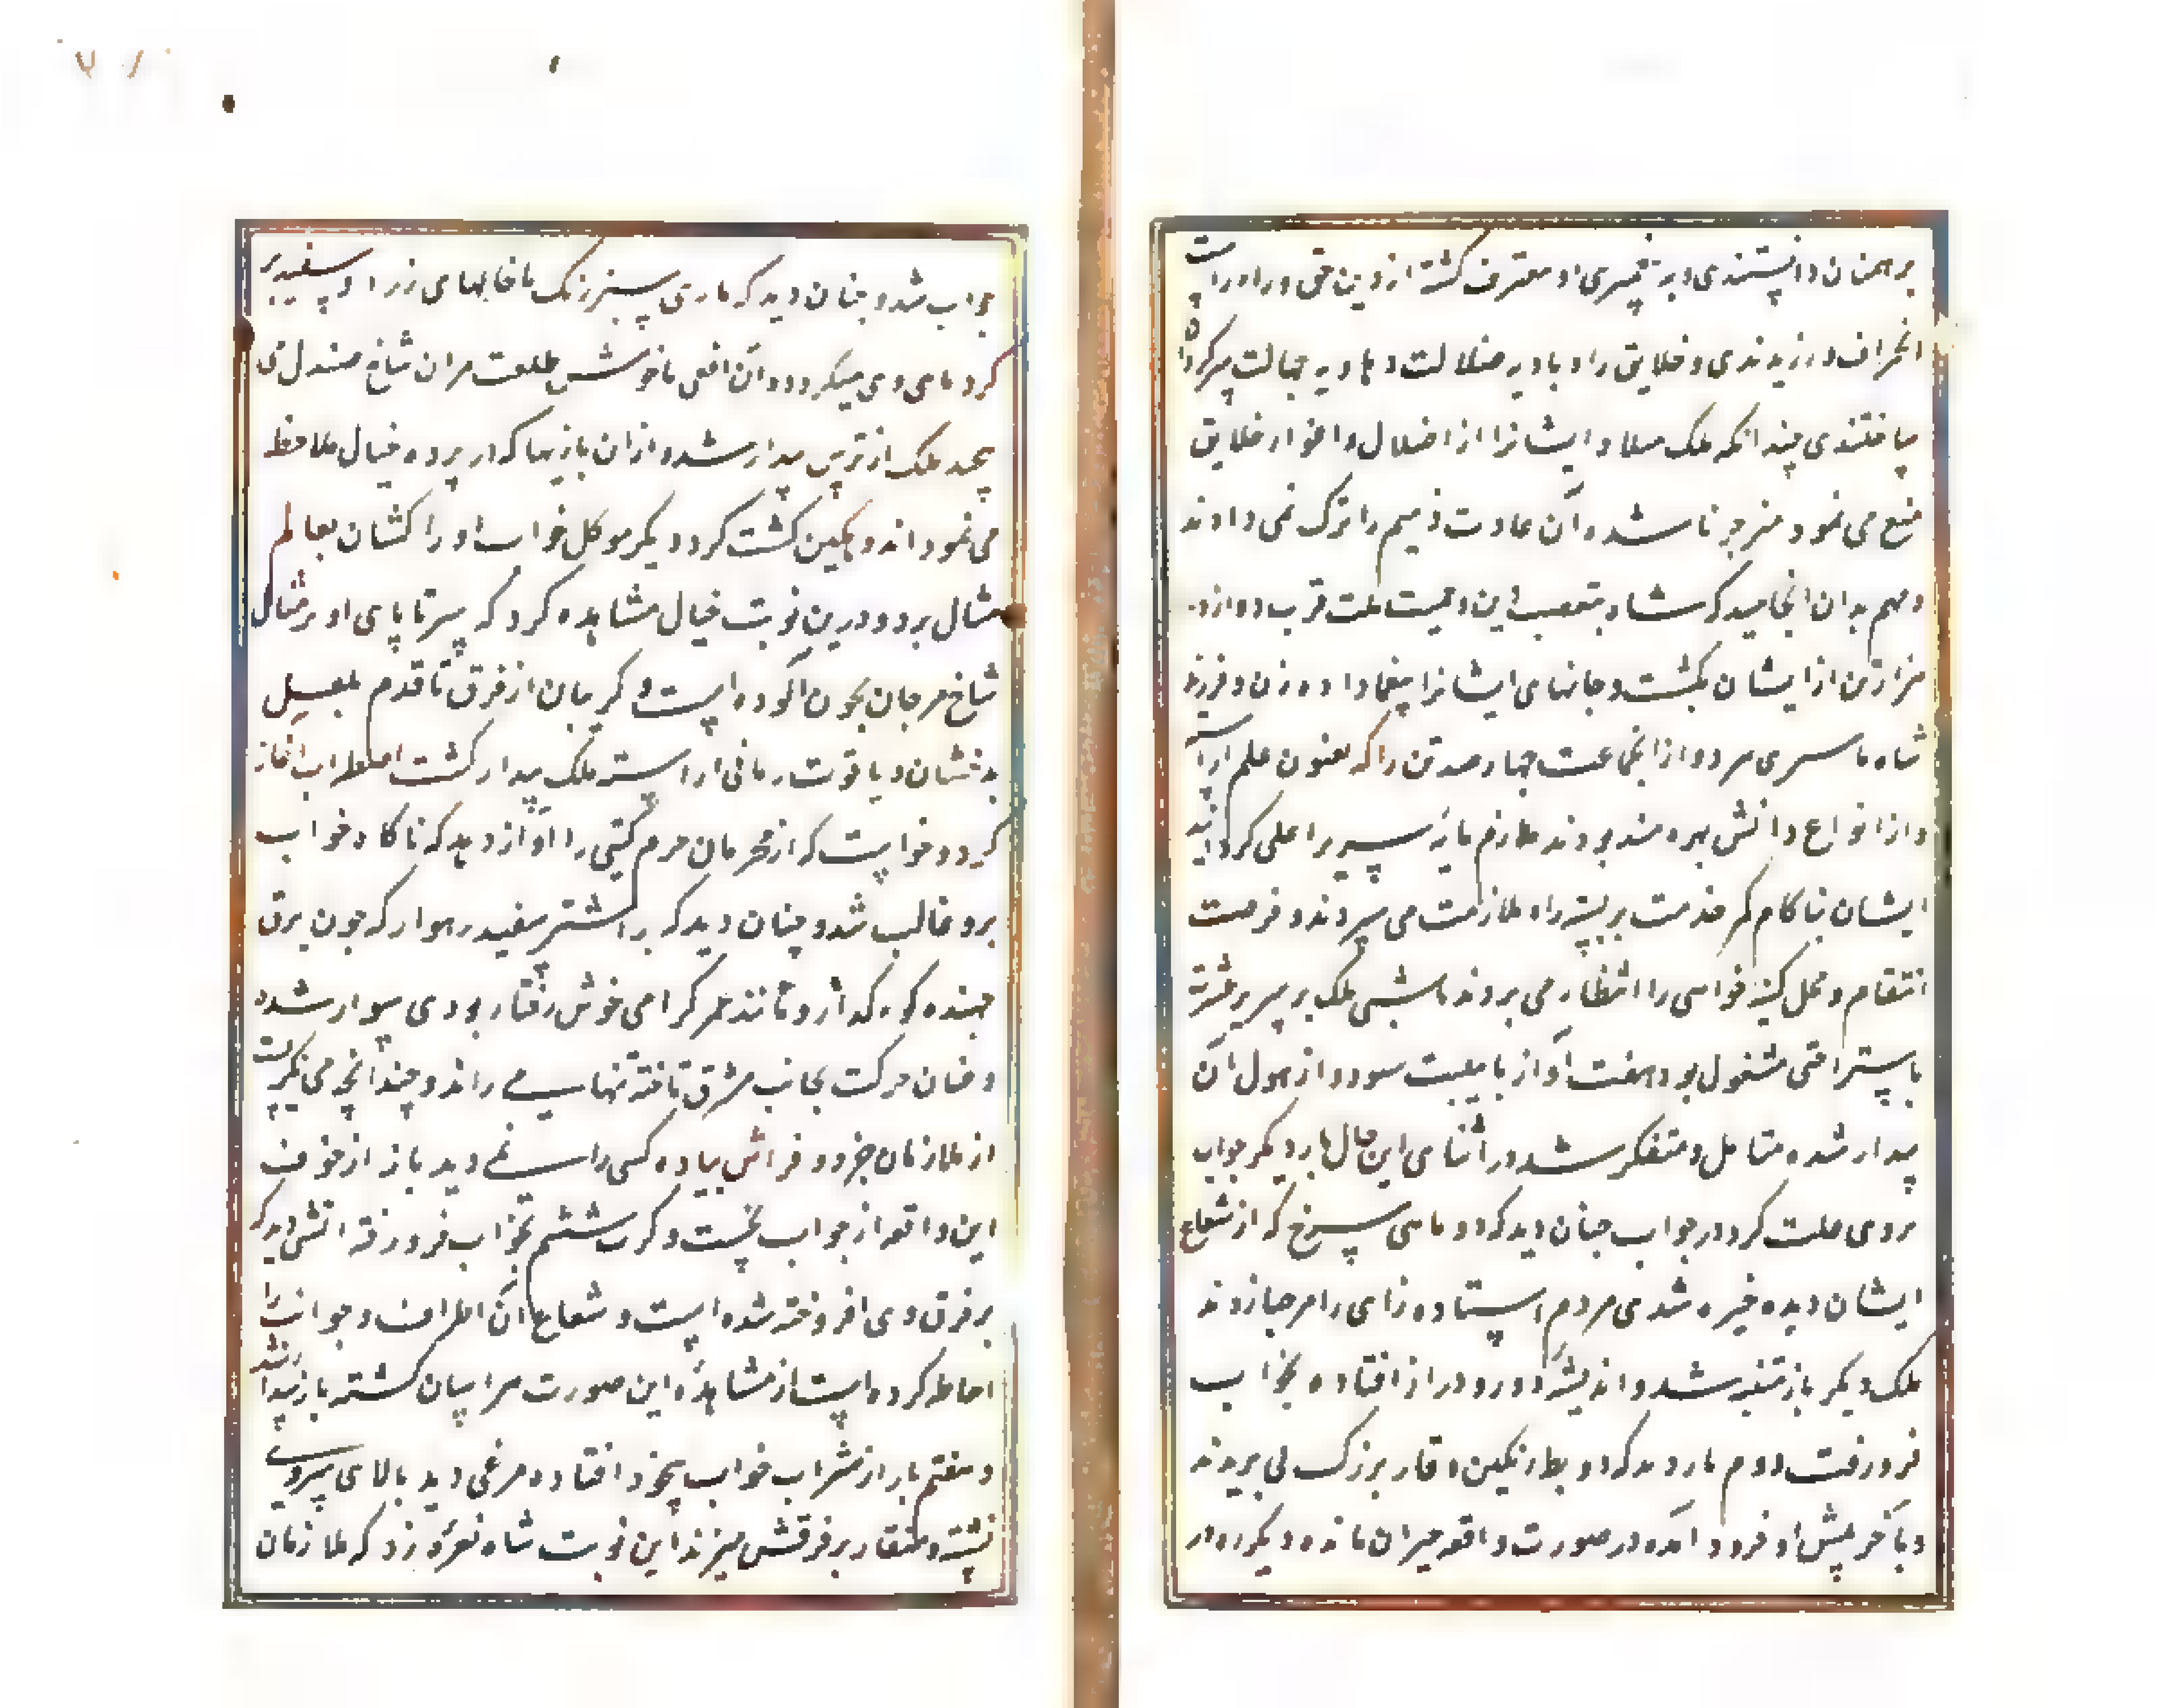 برهمنان دانستندی و به پیغمبری او معترف گشته از دین حق و راه راست
انحراف ورزیدندی و خلایق را در بادیه ضلالت و هاویه جهالت سرگردان
ساختندی چندانکه ملک هیلار ایشانرا از اضلال و اغوای خلایق
منع می نمود منزجر ناشده آن عادت ذمیم را ترک نمی دادند
و مهم بدان انجامید که شاه بتعصب دین و حمیت ملت قرب دوازده
هزار تن از ایشان بکشت و خانهای ایشانرا بیغما داده زن و فرزند
شاه باسیری برد و از انجماعت چهار صد تن را که بفنون علم آراسته
و از انواع دانش بهره مند بودند ملازم پایه سریر اعلی گردانید
ایشان ناکام کمر خدمت بربسته راه ملازمت می سپردند و فرصت
انتقام و محل کینه خواهی را انتظار می بردند تا شبی ملک بر سریر عشرت
باستراحتی مشغول بود هفت آواز با هیبت شنود و از هول آن
بیدار شده متامل و متفکر شد در اثنای این حال بار دیگر خواب
بر وی غلبت کرد در خواب چنان دید که دو ماهی سرخ که از شعاع
ایشان دیده خیره شدی بر دم ایستاده وی را مرحبا زدند
ملک دیگر باز متنبه شد و اندیشه دور و دراز افتاده بخواب
فرو رفت دوم بار دید که دو بط رنگین و قاز بزرگ پی پریدند
و بآخر پیش او فرود آمده در صورت واقعه حیران مانده دیگر در
خواب شد و چنان دید که ماری سبز رنگ با خالهای زرد و سفید بر
گرد پای وی میگردد و آن افعی ناخوش طلعت بران شاخ صندل می
پیچد ملک از ترس بیدار شد و از ان بازیها که از پرده خیال ملاحظه
می نمود اندوهگین گشت کرد دیگر موکل خواب او را کشان بعالم
مثال برد و درین نوبت خیال مشاهده کرد که سر تا پای او بر مثال
شاخ مرجان بخون آلوده است و گریبان از فرق تا قدم بلعل
بدخشان و یاقوت رمانی آراسته ملک بیدار گشت اضطراب آغاز
کرد و خواست که از محرمان حرم کسی را آواز دهد که ناگاه خواب
برو غالب شد و چنان دید که بر استر سفید رهوار که چون برق
جهنده کوه گذار و مانند عمر گرامی خوش رفتار بودی سوار شده
و عنان حرکت بجانب مشرق تافته تنها می راند و چندانچه می نگریست
از ملازمان جز دو فراش پیاده کسی را نمی دید باز از خوف
این واقعه از خواب بجست و کرت ششم بخواب فرو رفته آتشی دید که
بر فرق وی افروخته شده است و شعاع آن اطراف و جوانب را
احاطه کرده است از مشاهده این صورت هراسان گشته باز بیدار شد
و هفتم بار از شراب خواب بیخود افتاده مرغی دید بالای سر وی
نشسته و منقار بر فرقش میزند این نوبت شاه نعره زد که ملازمان